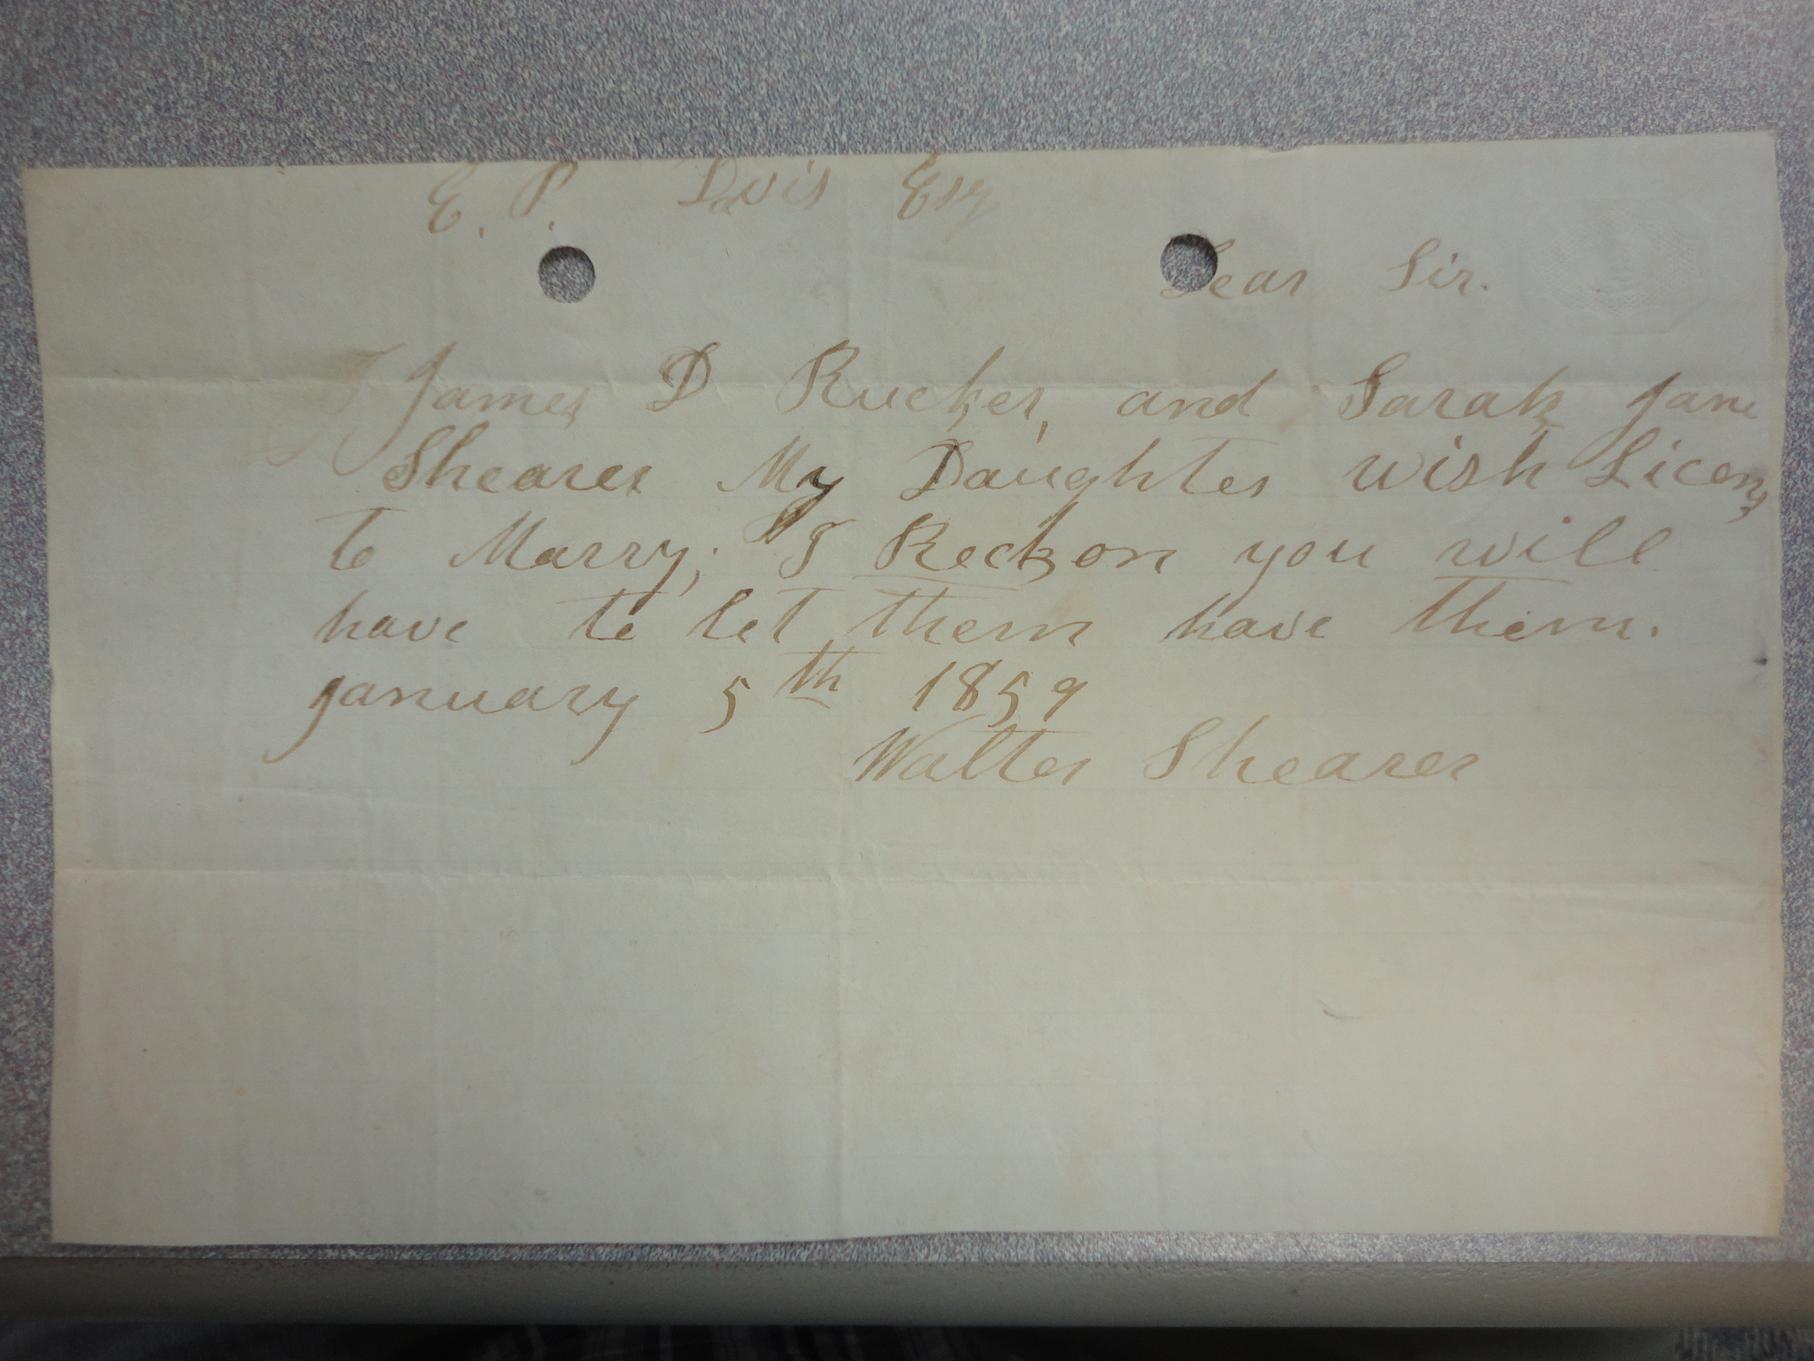 E. P. Davis Esq
Dear Sir.
James D Rucker, and Sarah Jane
Shearer My Daughter wish Licens
to Marry; I Reckon you will
have to let them have them.
January 5th 1859
Walter Shearer